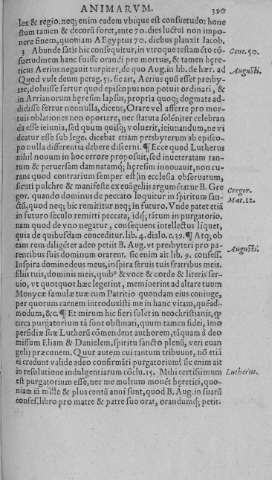 ANIMARVM. 390
les & regio, neq; enim eadem vbique est consuetudo: hone
stum tamen & decorū foret, ante 70. dies luctui non impo-
nere finem, quoniam AEgyptus 70. diebus planxit Iacob.
3 Abunde satis hic consequitur, in vtroque testamēto cō- Gene. 50.
suetudinem hanc fuisse orandi pro mortuis, & tamen hære-
ticus Aerius negauit turpiter, de quo Aug. in lib. de hær. ad Augusti.
Quod vult deum pereg. 53. sic ait, Aerius quū esset presby-
ter, doluisse fertur quod episcopus non potuit ordinari, &
in Arrianorum hæresim lapsus, propria quoq; dogmata ad-
didisse fertur nonnulla, dicens, Orare vel afferre pro mor-
tuis oblationes non oportere, nec statuta soléniter celebran
da esse ieiunia, sed quum quisq; voluerit, ieiunandum, ne vi
deatur esse sub lege. dicebat etiam presbyterum ab episco-
po nulla differentia debere discerni. ¶ Ecce quod Lutherus
nihil nouum in hoc errore proposuit, sed inueteratam ran-
tum & peruersam damnatamq; hæresim innouauit, non cu-
rans quod contrarium semper est in ecclesia obseruatum,
sicuti pulchre & manifeste ex euāgelijs arguméta tur B. Gre Gregor.
gor. quando dominus de peccato loquitur in spiritum san- Mat. 12.
ctū, quod neq; hic remittitur neq; in futuro. Vnde patet etiā
in futuro sęculo remitti peccata, idq; rātum in purgatorio.
nam quod de vno negatur, consequens intellectus liquet,
quia de quibusdam conceditur. lib. 4. dialo. c. 39. ¶ Atq; ob
eam rem diligēter adeo petiit B. Aug. vt presbyteri pro pa- Augusti.
rentibus suis dominum orarent. sic enim ait lib. 9. confess.
Inspira domine deus meus, inspira seruis tuis fratribus meis.
filiis tuis, dominis meis, quib⁹ & voce & corde & literis ser-
uio, vt quotquot hæc legerint, meminerint ad altare tuum
Monycæ famulæ tuæ cum Patritio quondam eius coniuge,
per quorum carnem introduxisti me in hanc vitam, quéad-
modum, &c. ¶ Et mirum hic fieri solet in neochristianis, q
circa purgatorium tā sunt obstinati, quum tamen fidei, imo
perfidiæ suæ Lutherū cōmendent authorem, tāquam à deo
missum Eliam & Danielem, spiritu sancto plenū, veri euan
gelij præconem. Quur autem cui tantum tribuunt, nō etiā
ei credunt valide adeo confirmāti purgatorium? sic enim ait
in resolutione indulgentiarum cōclu. 15. Mihi certissimum Lutherus.
est purgatorium esse, nec me multum mouēt hęretici, quo-
niam iā mille & plus centū anni sunt, quod B. Aug. in suarū
confess. libro pro matre & patre suo orat, orandumq; petit.